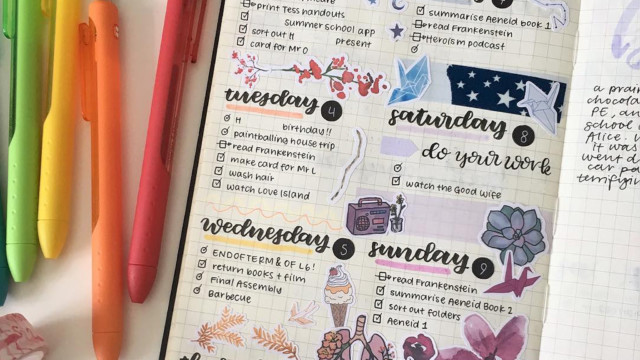 print Tess handouts
Summer school app
sort out H present
card for Mr O
tuesday 4
H birthday!!
paintballing house trip
read Frankenstein
make card for Mr L
wash hair
watch Love Island
wednesday 5
END OF TERM & OF L6!
return books + film
Final Assembly
Barbecue
summarise Aeneid Book 2
read Frankenstein
Heroism podcast
saturday 8
do your work
watch the Good Wife
sunday 9
read Frankenstein
summarise Aeneid Book 2
sort out folders
Aeneid 1
a prair
chocola
PE, an
school
Alice.
It was
went d
car pa
terrifyin